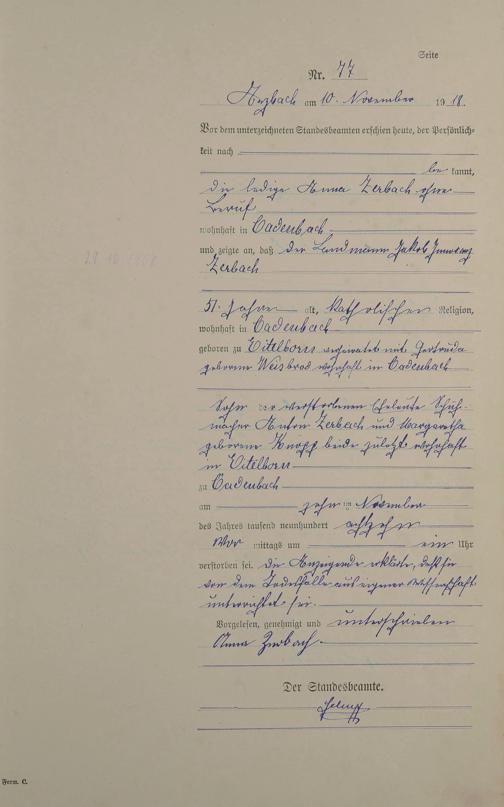 Seite
Nr. 77
Arzbach am 10. November 1918.
Vor dem unterzeichneten Standesbeamten erschien heute, der Persönlich-
keit nach
be kannt,
die ledige Anna Zerbach ohne
Beruf
wohnhaft in Cadenbach
und zeigte an, daß der Landmann Jakob
Zerbach
51 Jahre alt, katholischer Religion,
wohnhaft in Cadenbach
geboren zu Eitelborn verheiratet mit Gertruda
geborene Weisbrod wohnhaft in Cadenbach
Sohn der verstorbenen Eheleute Schuh-
macher Anton Zerbach und Margaretha
geborene Knopp beide zuletzt wohnhaft
in Eitelborn
zu Cadenbach
am zehn ten November
des Jahres tausend neunhundert achtzehn
Vor mittags um ein Uhr
verstorben sei. Die Anzeigende erklärte, daß sie
von dem Todesfalle aus eigener Wissenschaft
unterrichtet sei.
Vorgelesen, genehmigt und unterschrieben
Anna Zerbach
Der Standesbeamte.
Form. C.